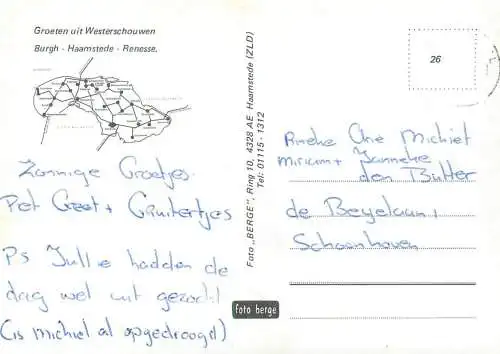 Groeten uit Westerschouwen
Burgh - Haamstede - Renesse.
Zonnige Groetjes.
Pet Geert + Gruitertjes
Ps Jullie hadden de
dag wel uit gezocht
(is michiel al opgedroogd)
Foto „BERGE", Ring 10, 4328 AE Haamstede (ZLD)
Tel: 01115 - 1312
foto berge
26
Rineke One Michiel
Miriam + Janneke
den Butter
de Beyelaan,
Schoonhoven